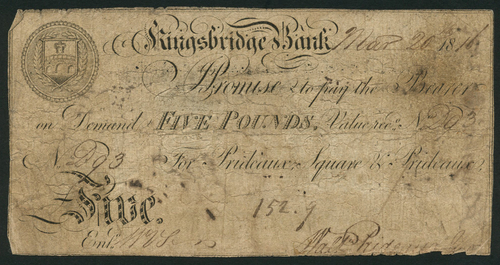 Kingsbridge Bank Mar 20 1816
I Promise to pay the Bearer
on Demand FIVE POUNDS, Value recd. No
No For Prideaux Square & Prideaux
Five. 152.9
Entd.